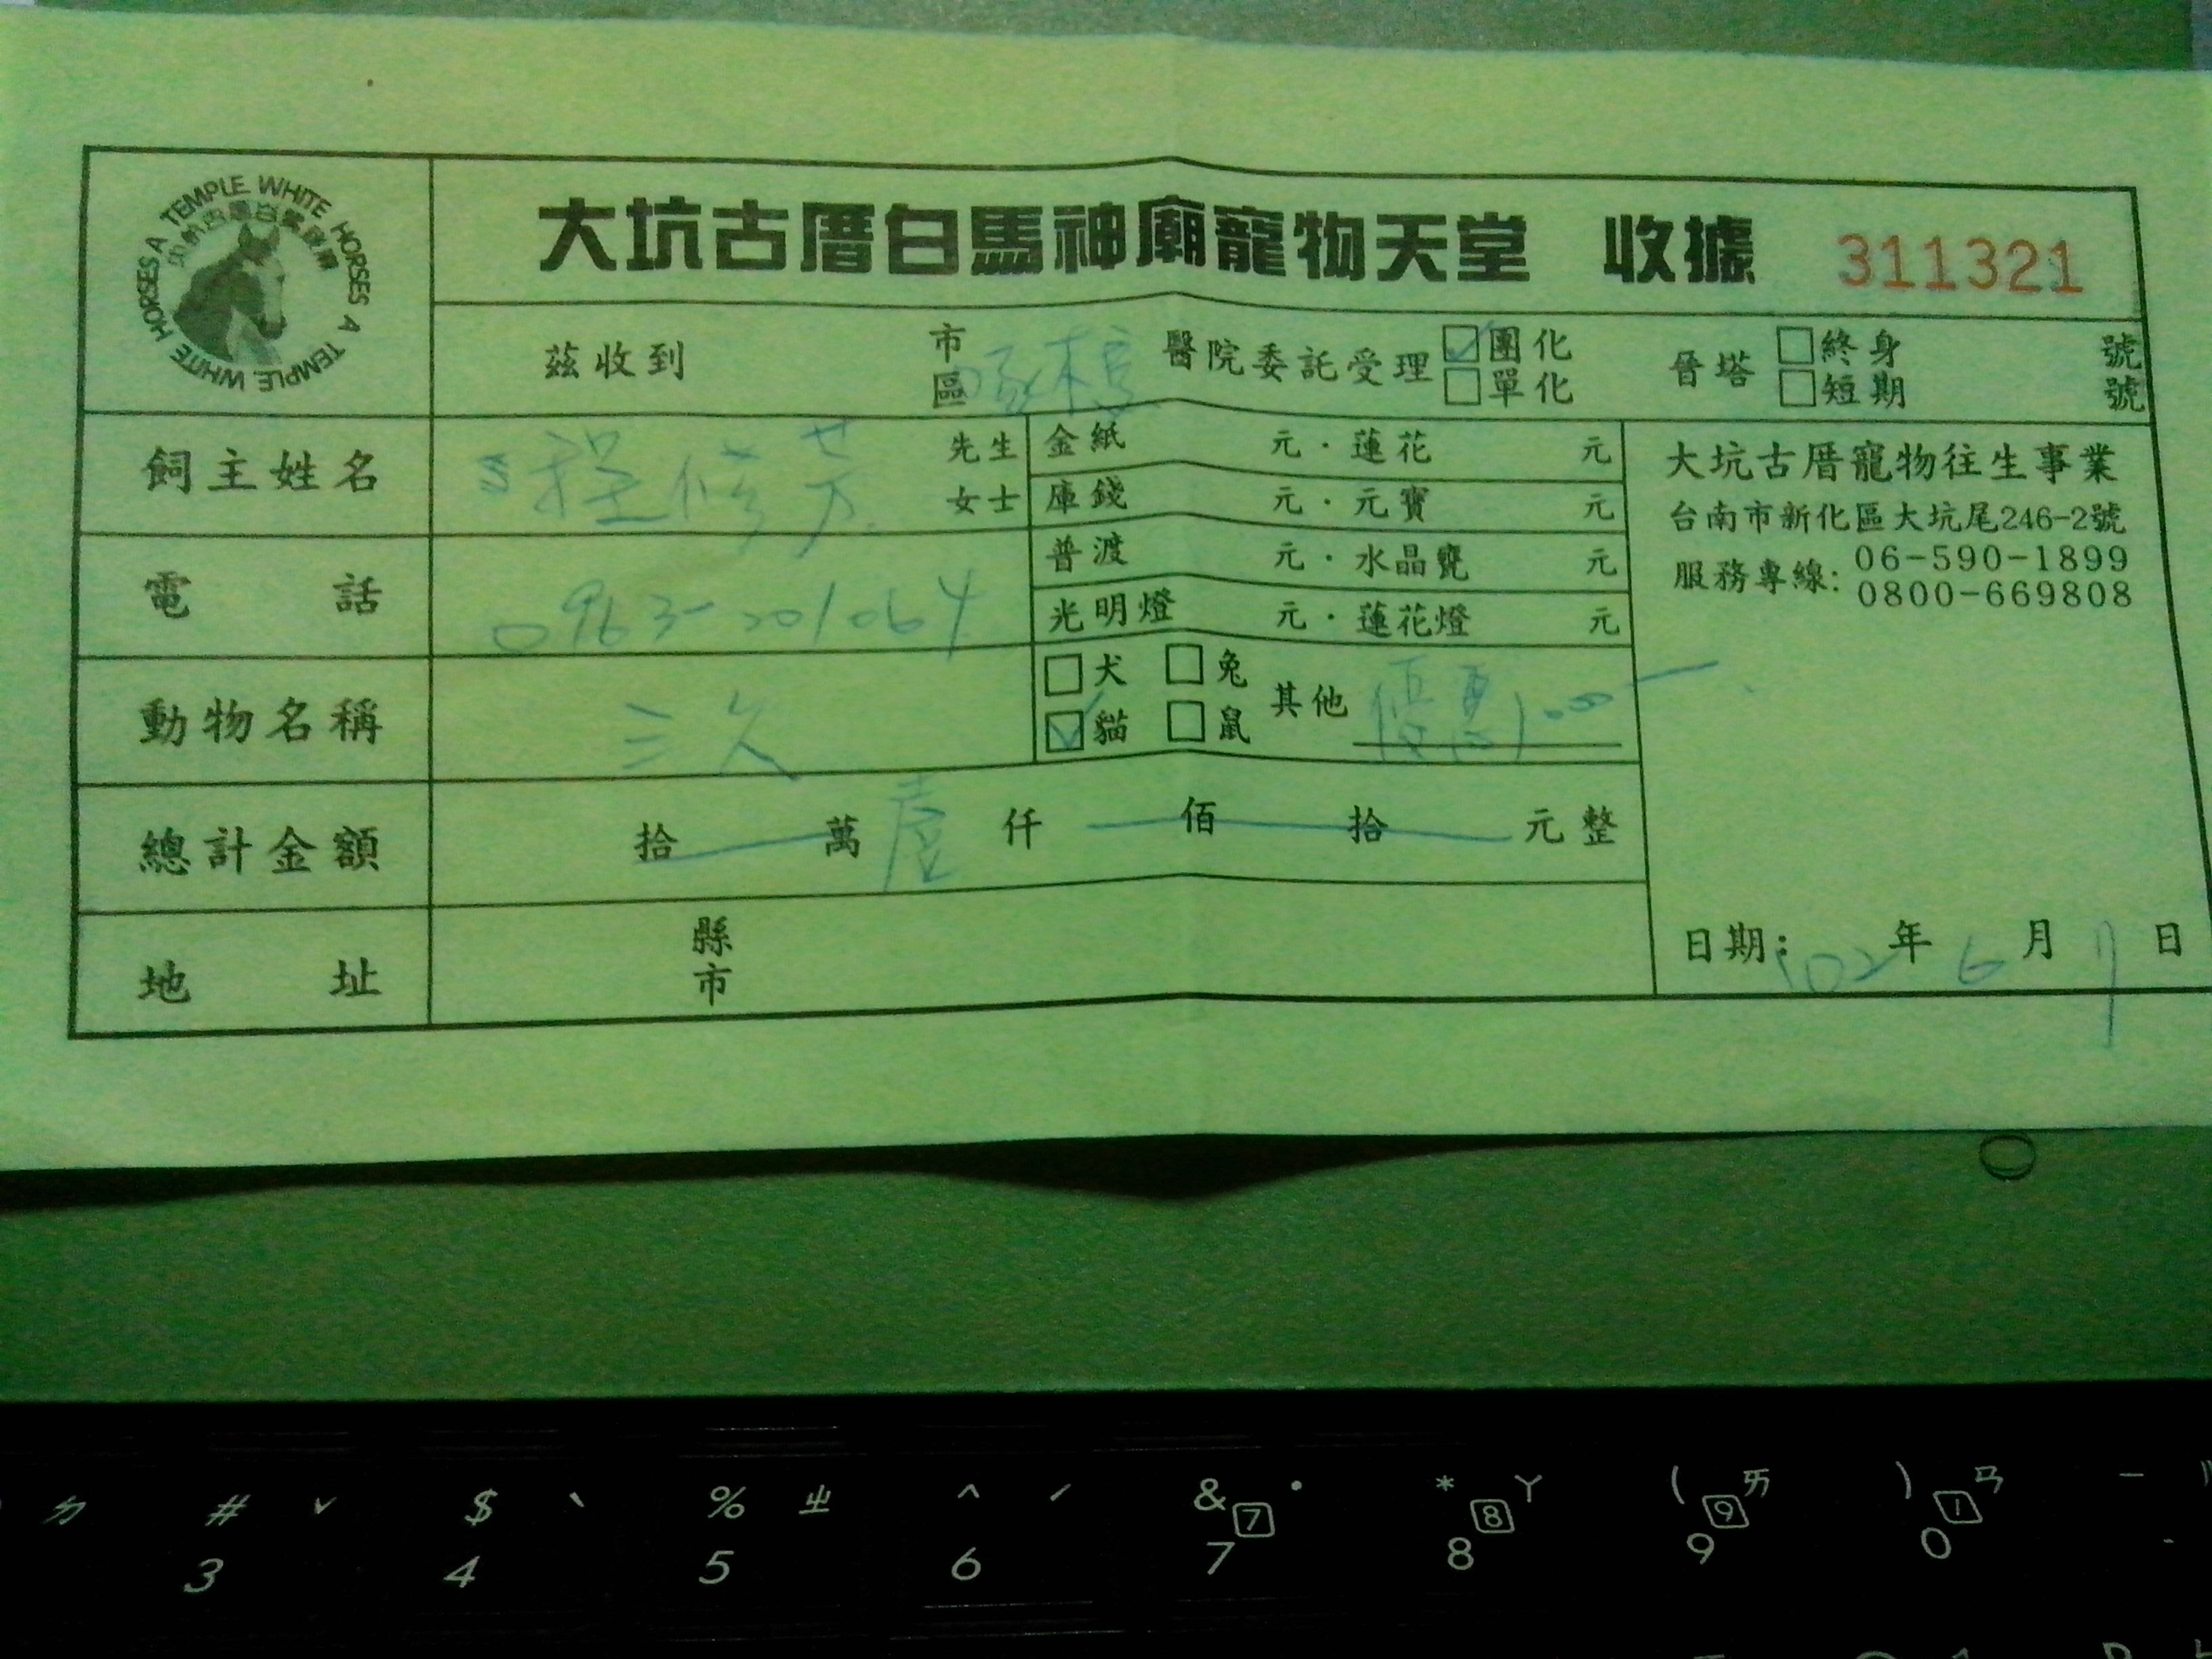 WHITE HORSES A TEMPLE WHITE HORSES A TEMPLE
大坑古厝白馬神廟寵物天堂 收據 311321
茲收到 市區 醫院委託受理 團化 單化 晉塔 終身 號 短期 號
飼主姓名 程修 先生 女士
金紙 元·蓮花 元
庫錢 元·元寶 元
普渡 元·水晶甕 元
光明燈 元·蓮花燈 元
大坑古厝寵物往生事業
台南市新化區大坑尾246-2號
服務專線: 06-590-1899
0800-669808
電話 0963-201064
動物名稱 三久
犬 兔 貓 鼠 其他 優惠
總計金額 拾 萬 壹 仟 佰 拾 元整
地址 縣市
日期: 102 年 6 月 7 日
ㄉ # ˇ $ ˋ % ㄓ ^ ˊ & 7 ˙ * 8 ㄚ ( 9 ㄞ ) ㄢ
3 4 5 6 7 8 9 0